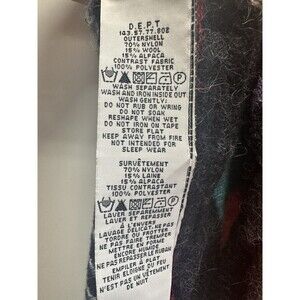 D.E.P.T
143.57.77.802
OUTERSHELL
70% NYLON
15% WOOL
15% ALPACA
CONTRAST FABRIC
100% POLYESTER
WASH SEPARATELY
WASH AND IRON INSIDE OUT
WASH GENTLY:
DO NOT RUB OR WRING
DO NOT SOAK
RESHAPE WHEN WET
DO NOT IRON ON TAPE
STORE FLAT
KEEP AWAY FROM FIRE
NOT INTENDED FOR
SLEEP WEAR
SURVÊTEMENT
70% NYLON
15% LAINE
15% ALPACA
TISSU CONTRASTANT
100% POLYESTER
LAVER SEPAREMMENT
LAVER ET REPASSER
À L'ENVERS
LAVAGE DÉLICAT. NE PAS
TORDRE OU FROTTER
NE PAS FAIRE TREMPER
METTRE EN FORME
ENCORE HUMIDE
NE PAS REPASSER LE RUBAN
EMPILER À PLAT
TENIR ÉLOIGNÉ DU FEU
N'EST PAS UN VÊTEMENT
DE NUIT